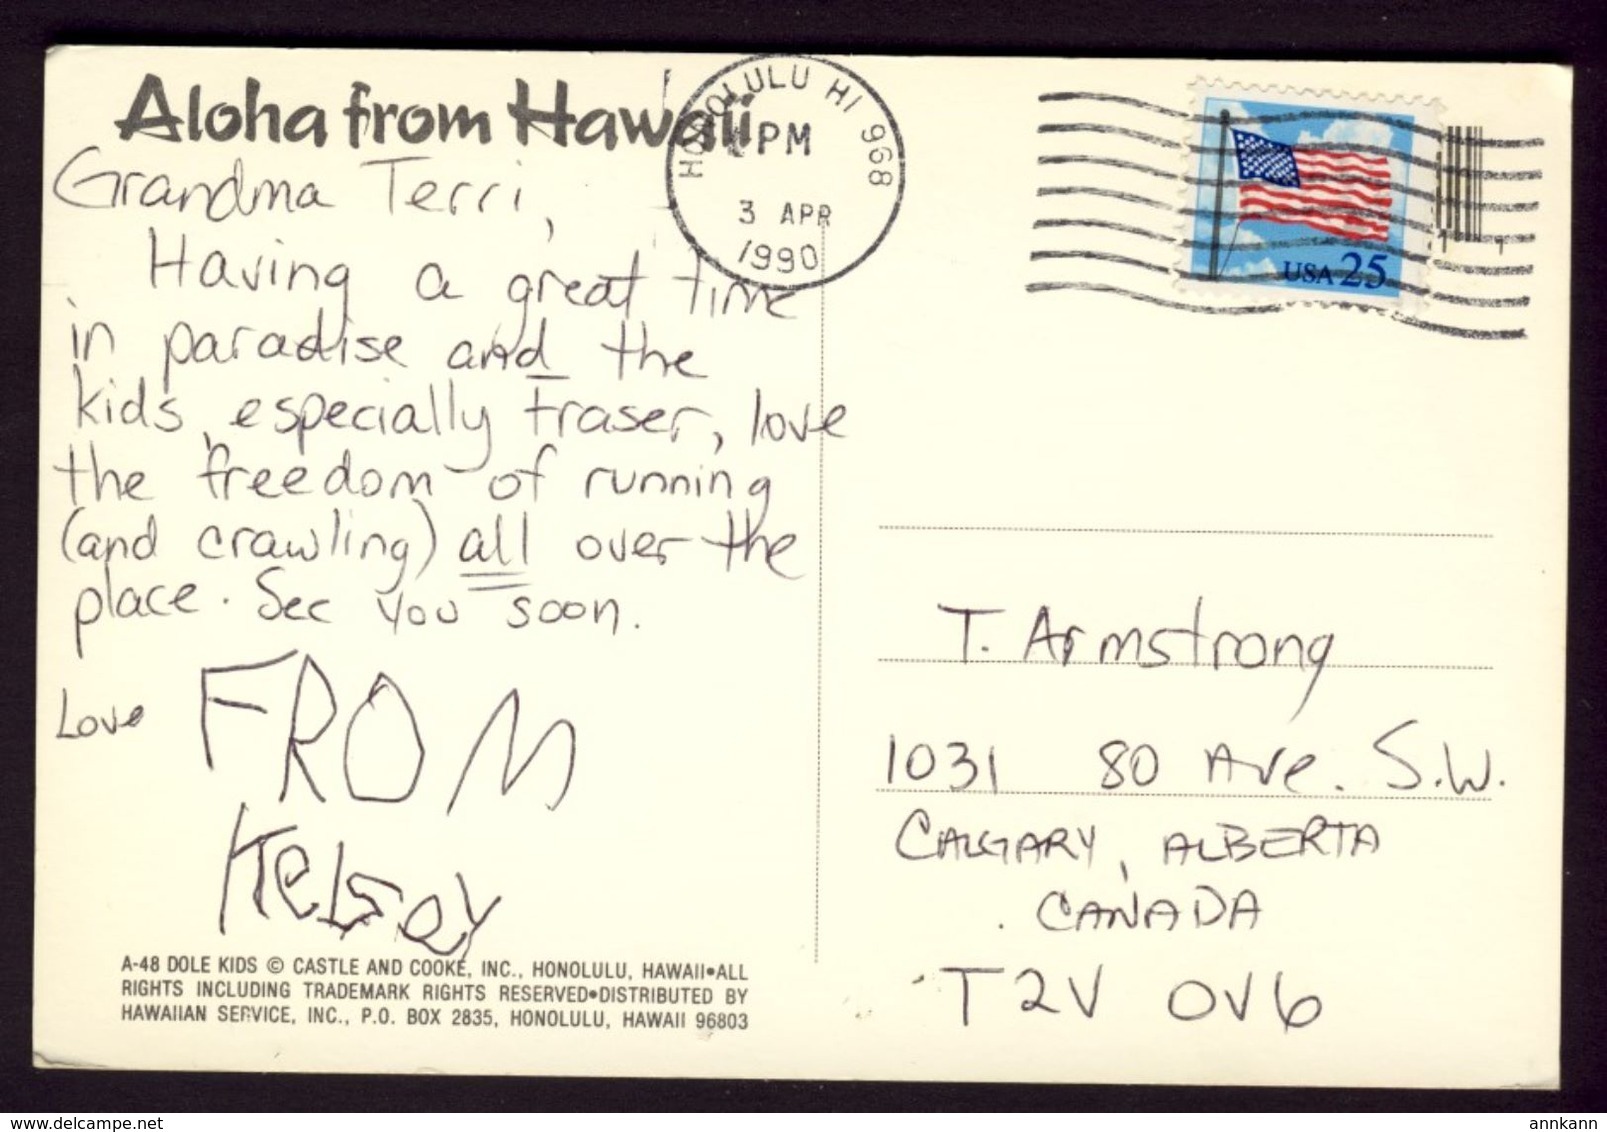 Aloha from Hawaii
Grandma Terri,
Having a great time
in paradise and the
kids, especially Fraser, love
the freedom of running
(and crawling) all over the
place. See you soon.
Love FROM
Kelsey
A-48 DOLE KIDS © CASTLE AND COOKE, INC., HONOLULU, HAWAII•ALL
RIGHTS INCLUDING TRADEMARK RIGHTS RESERVED•DISTRIBUTED BY
HAWAIIAN SERVICE, INC., P.O. BOX 2835, HONOLULU, HAWAII 96803
HONOLULU HI 968
PM
3 APR
1990
USA 25
T. Armstrong
1031 80 Ave. S.W.
CALGARY, ALBERTA
CANADA
T2V 0V6
annkann